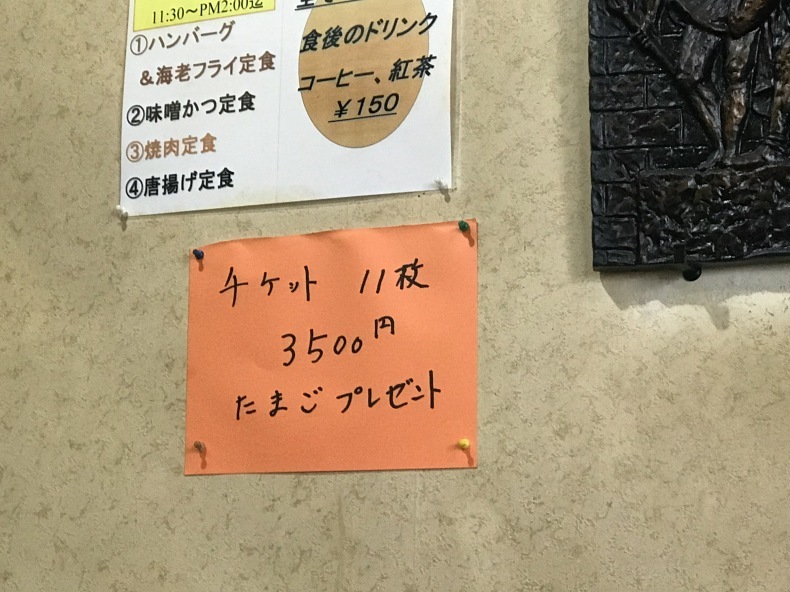 11:30～PM2:00迄
①ハンバーグ
&海老フライ定食
②味噌かつ定食
③焼肉定食
④唐揚げ定食
食後のドリンク
コーヒー、紅茶
￥150
チケット 11枚
3500円
たまごプレゼント